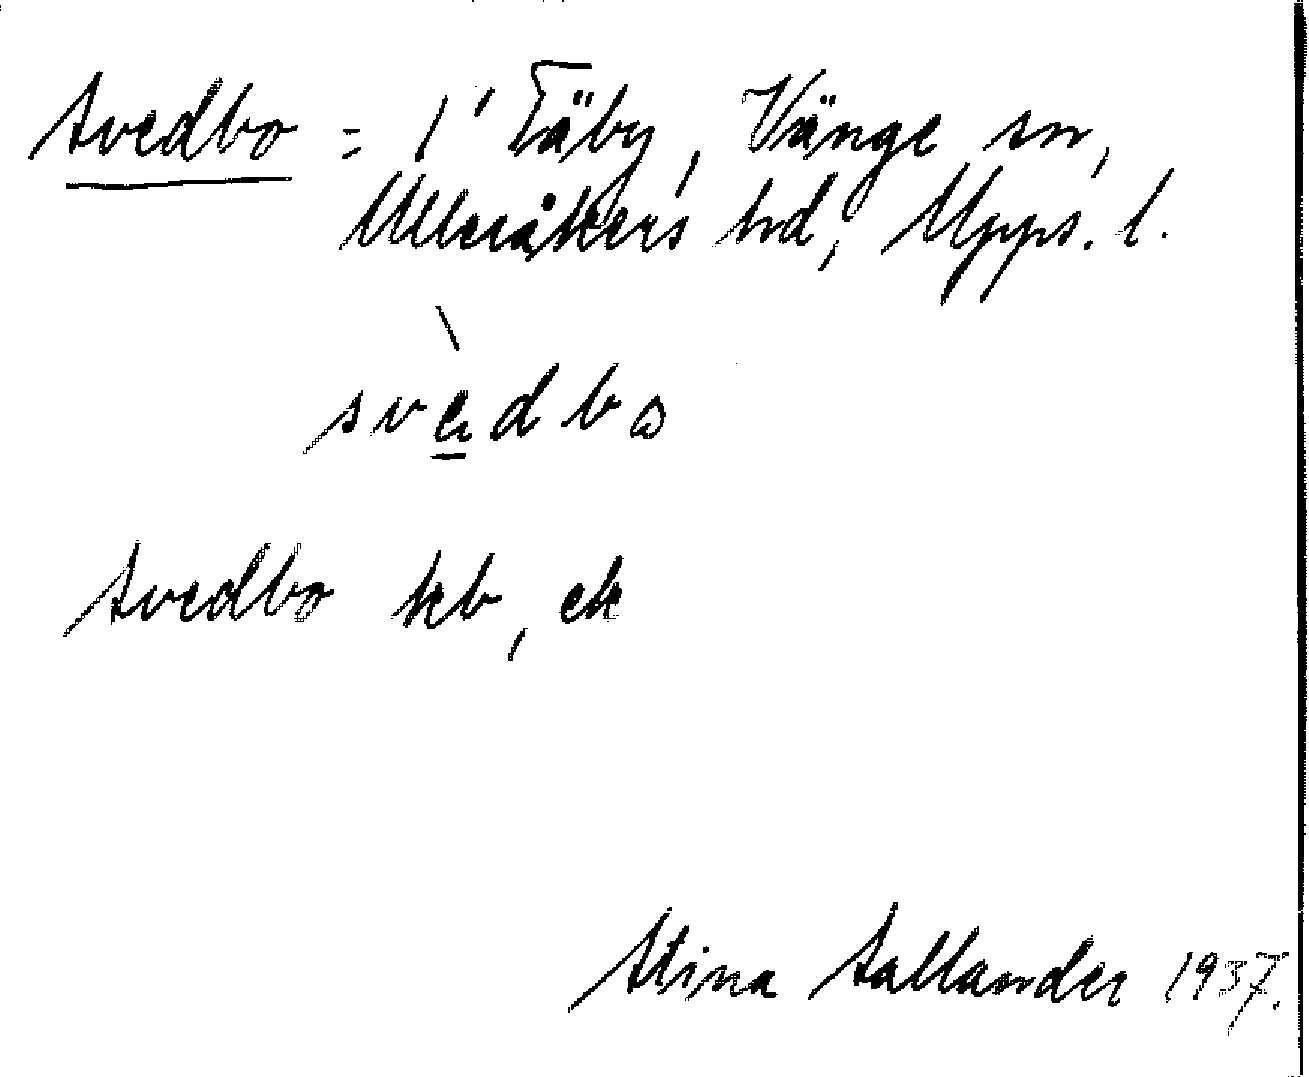 Svedbo = 1' Täby, Vänge sn,
Ulleråkers hd, Upps. l.
svèdbo
Svedbo kb, ek
Stina Sallander 1937.